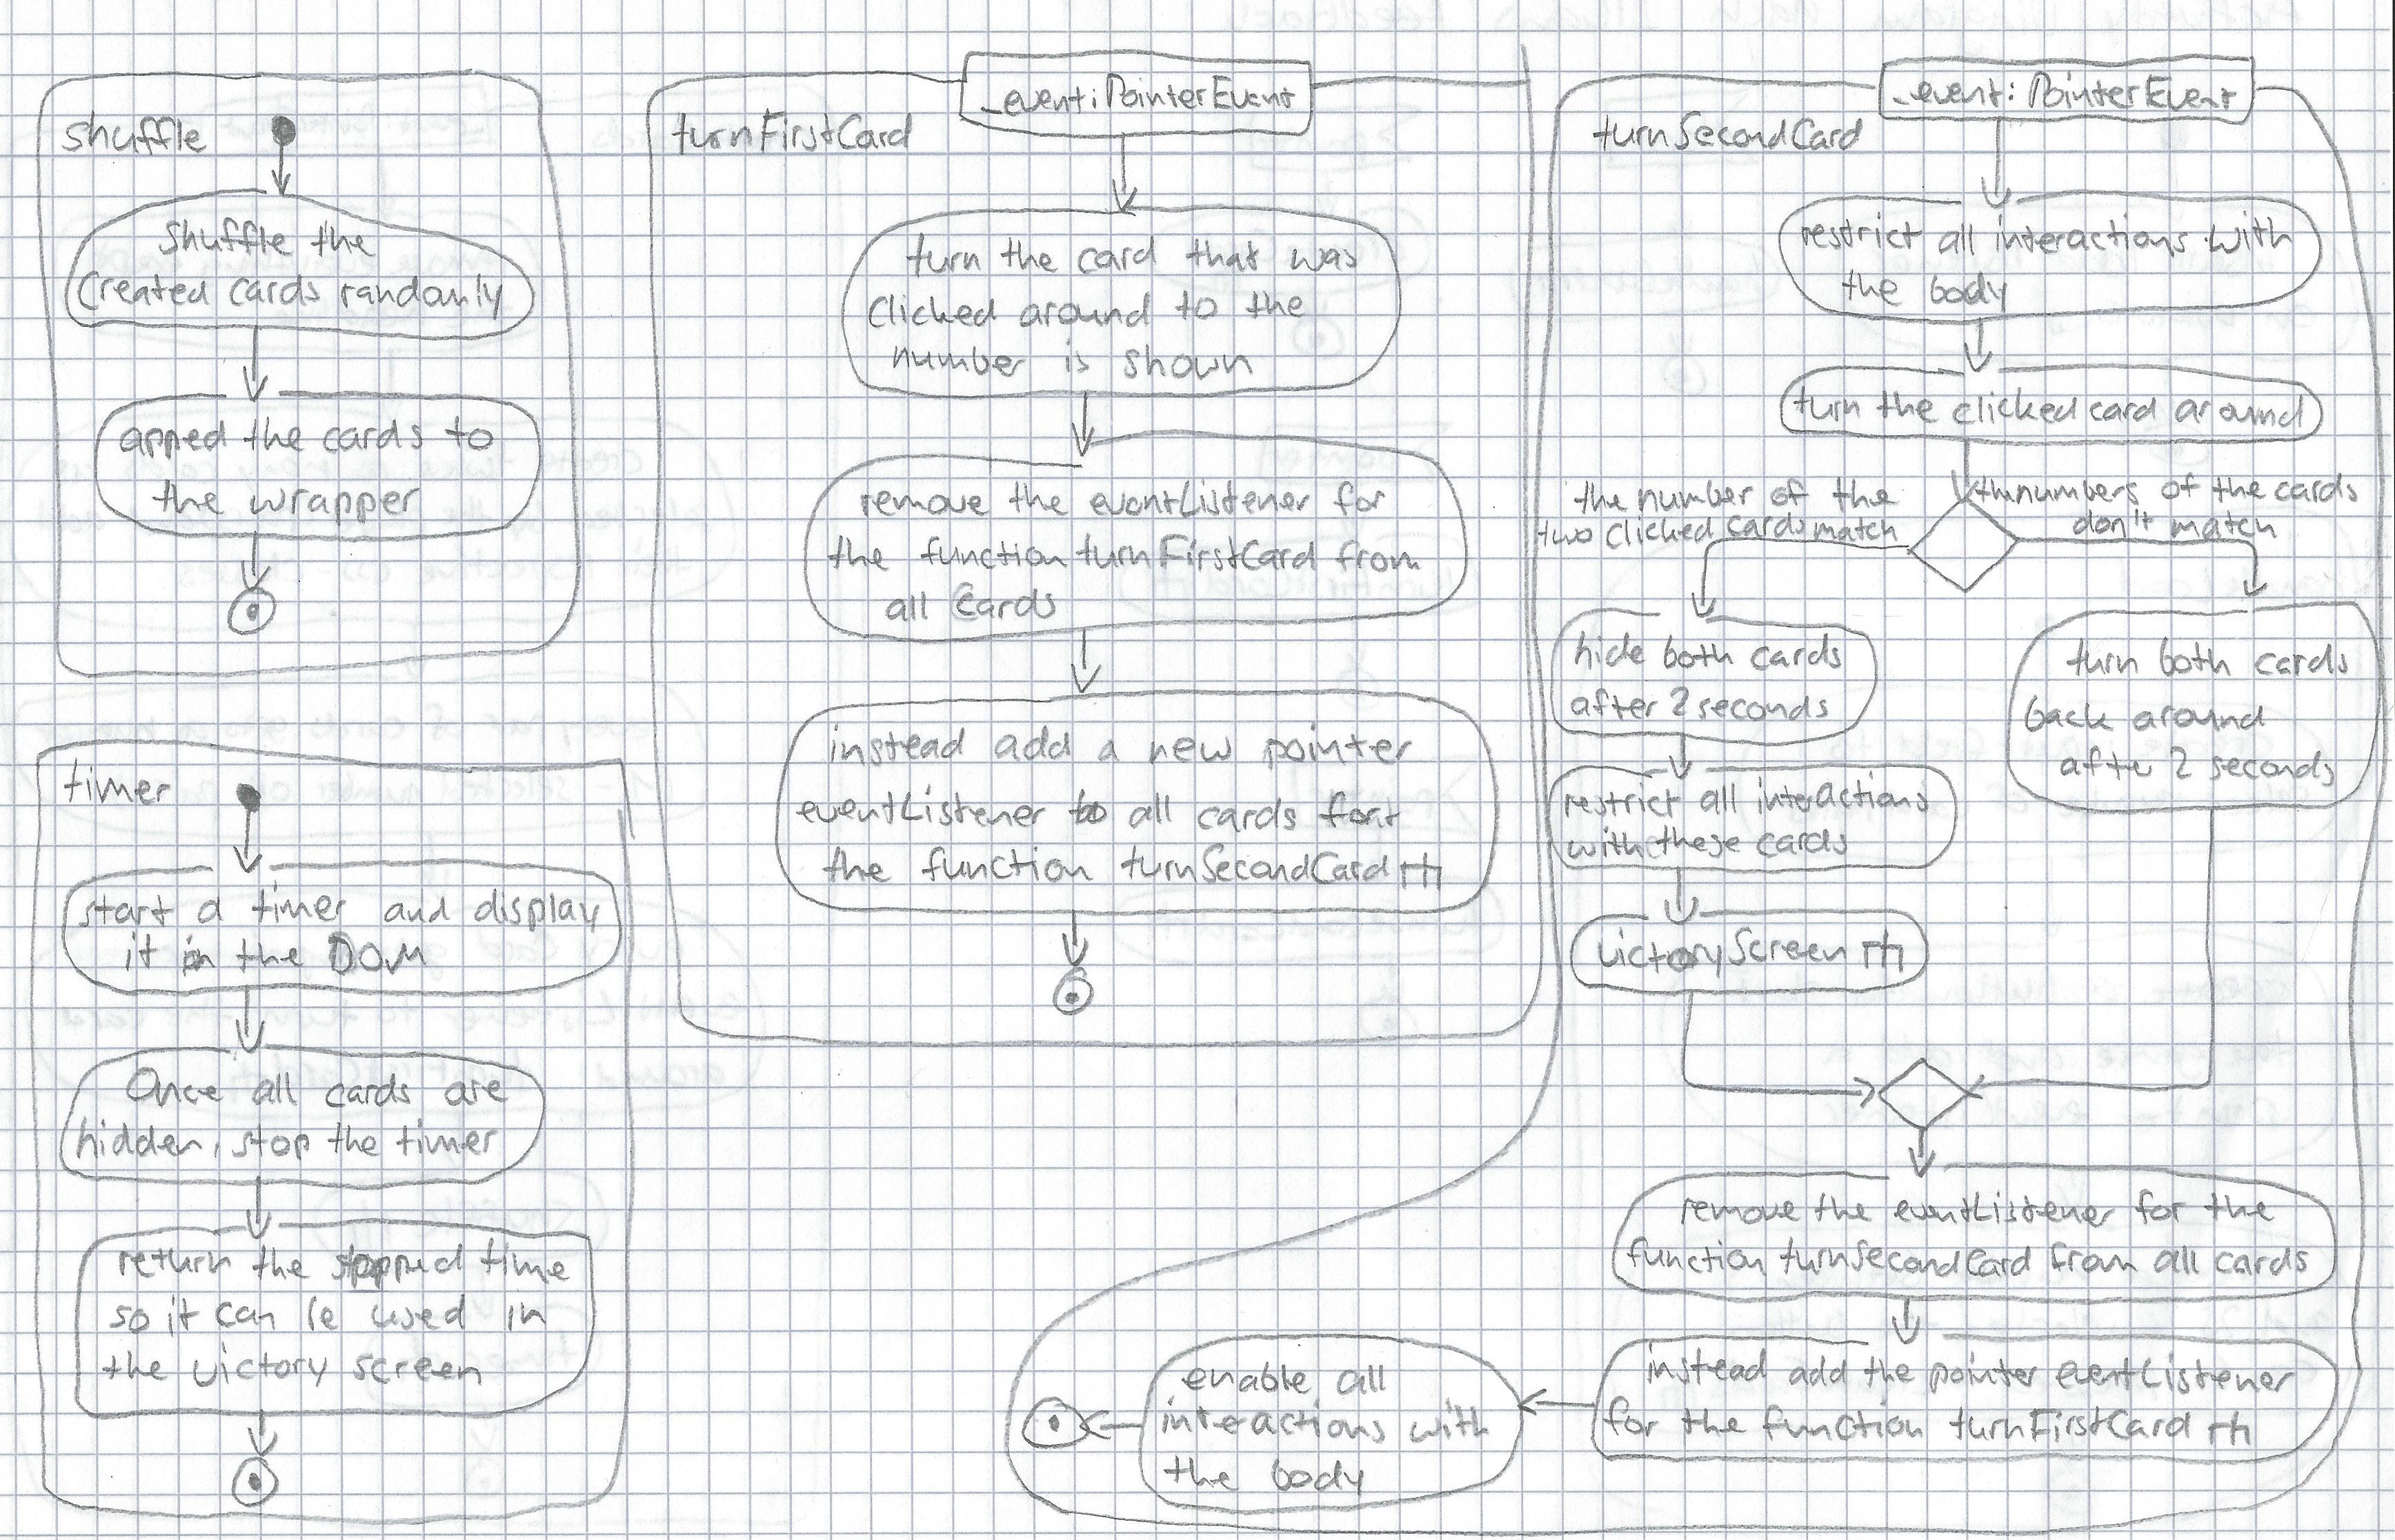 shuffle
shuffle the
created cards randomly
apped the cards to
the wrapper
timer
start a timer and display
it in the DOM
Once all cards are
hidden, stop the timer
return the stopped time
so it can be used in
the victory screen
_event: PointerEvent
turnFirstCard
turn the card that was
clicked around to the
number is shown
remove the eventListener for
the function turnFirstCard from
all cards
instead add a new pointer
eventListener to all cards for
the function turnSecondCard
_event: PointerEvent
turnSecondCard
restrict all interactions with
the body
turn the clicked card around
the number of the
two clicked cards match
numbers of the cards
don't match
hide both cards
after 2 seconds
restrict all interactions
with these cards
victoryScreen
turn both cards
back around
after 2 seconds
remove the eventListener for the
function turnSecondCard from all cards
instead add the pointer eventListener
for the function turnFirstCard
enable all
interactions with
the body